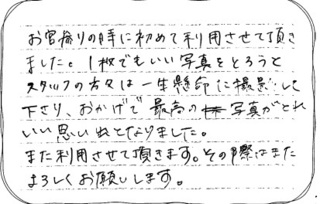 お宮参りの時に初めて利用させて頂き
ました。1枚でもいい写真をとろうと
スタッフの方々は一生懸命に撮影して
下さり、おかげで最高の写真がとれ
いい思い出となりました。
また利用させて頂きます。その際はまた
よろしくお願いします。